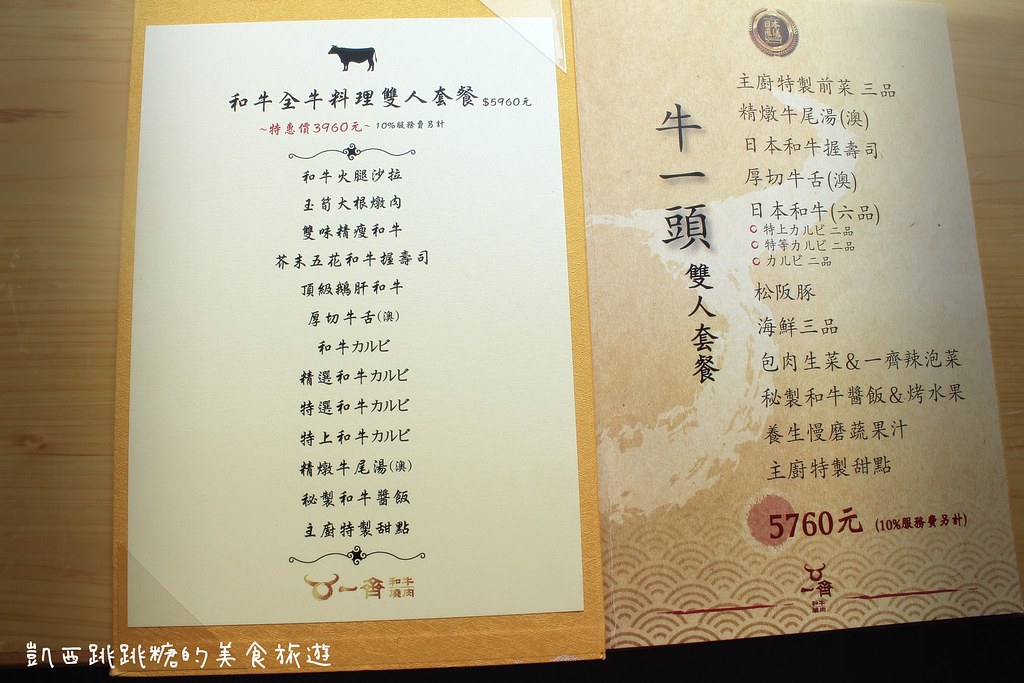 和牛全牛料理雙人套餐 $5960元
~特惠價3960元~ 10%服務費另計
和牛火腿沙拉
玉筍大根燉肉
雙味精瘦和牛
芥末五花和牛握壽司
頂級鵝肝和牛
厚切牛舌(澳)
和牛カルビ
精選和牛カルビ
特選和牛カルビ
特上和牛カルビ
精燉牛尾湯(澳)
秘製和牛醬飯
主廚特製甜點
一齊 和牛燒肉
牛一頭 雙人套餐
主廚特製前菜 三品
精燉牛尾湯(澳)
日本和牛握壽司
厚切牛舌(澳)
日本和牛(六品)
特上カルビ 二品
特等カルビ 二品
カルビ 二品
松阪豚
海鮮三品
包肉生菜&一齊辣泡菜
秘製和牛醬飯&烤水果
養生慢磨蔬果汁
主廚特製甜點
5760元 (10%服務費另計)
一齊
凱西跳跳糖的美食旅遊